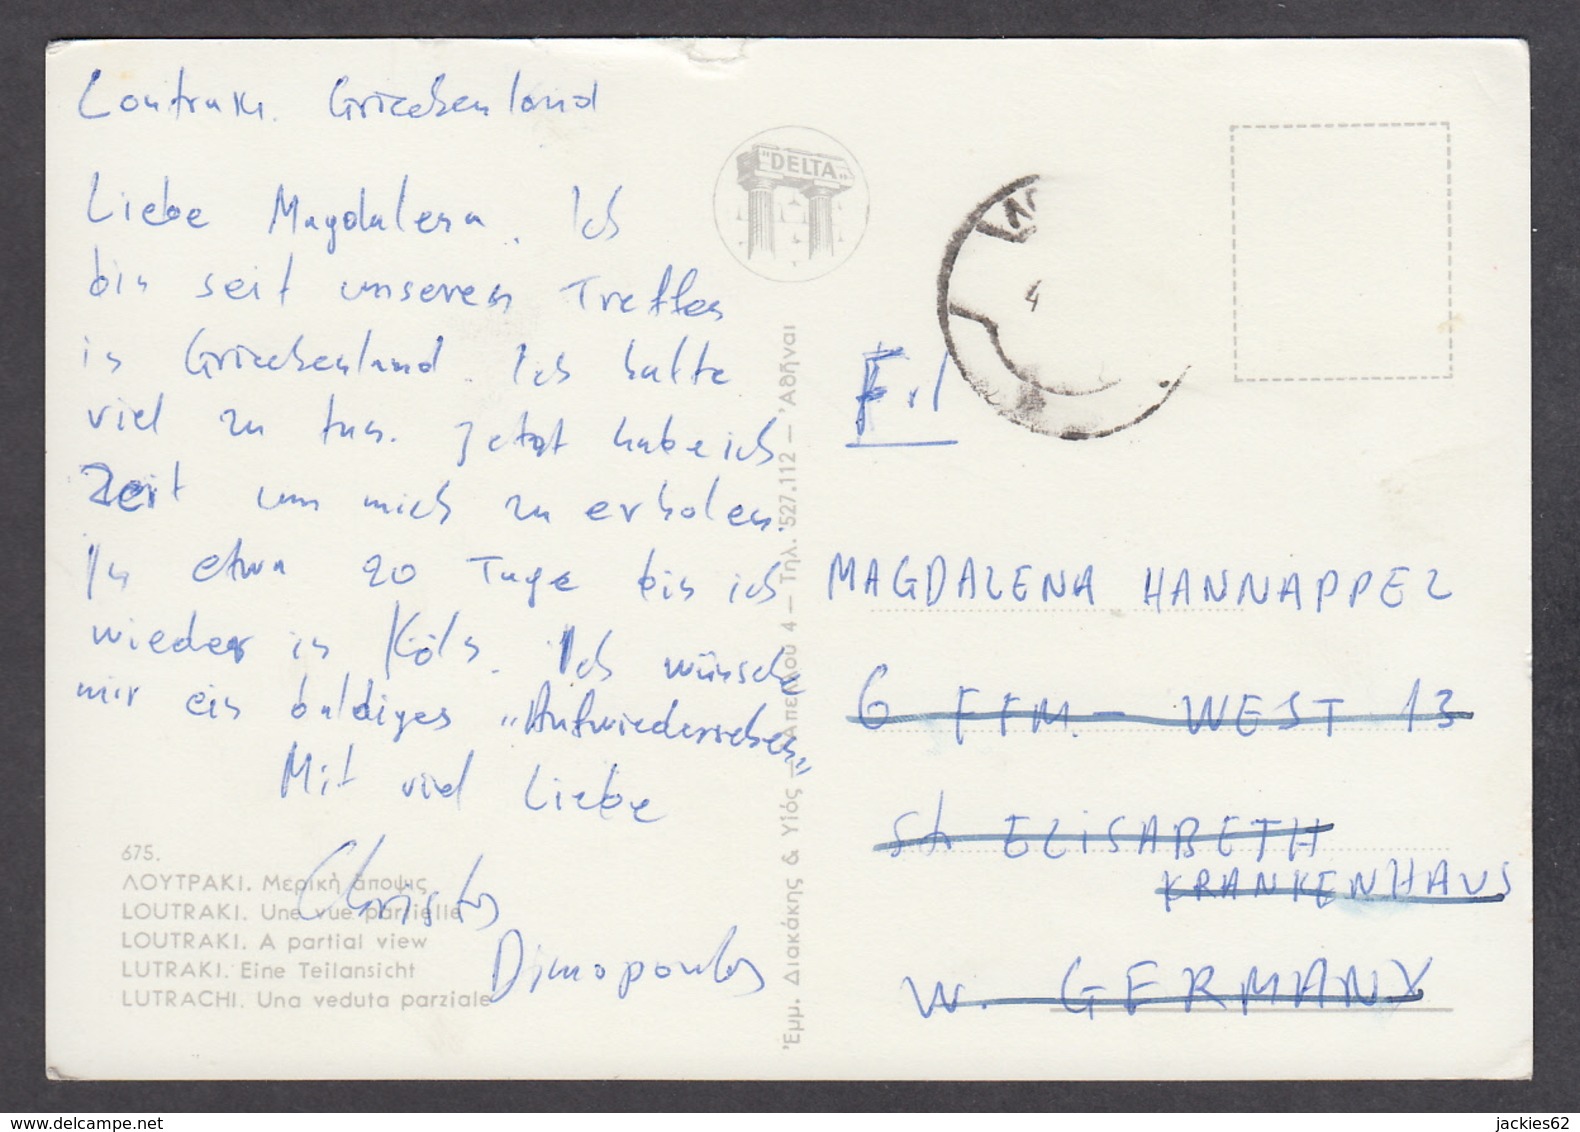 Loutraki. Griechenland
Liebe Magdalena. Ich
bin seit unseren Treffen
in Griechenland. Ich hatte
viel zu tun. Jetzt habe ich
Zeit um mich zu erholen.
In etwa 20 Tage bin ich
wieder in Köln. Ich wünsche
mir ein baldiges „Aufwiedersehen"
Mit viel Liebe
Christos
Dimopoulos
675.
ΛΟΥΤΡΑΚΙ. Μερική ἄποψις
LOUTRAKI. Une vue partielle
LOUTRAKI. A partial view
LUTRAKI. Eine Teilansicht
LUTRACHI. Una veduta parziale
"DELTA"
Ἐμμ. Διακάκης & Υἱός — Ἀπελλοῦ 4 — Τηλ. 527.112 — Ἀθῆναι
4
MAGDALENA HANNAPPEL
6 FFM. - WEST 13
St ELISABETH
KRANKENHAUS
W. GERMANY
www.delcampe.net
jackies62